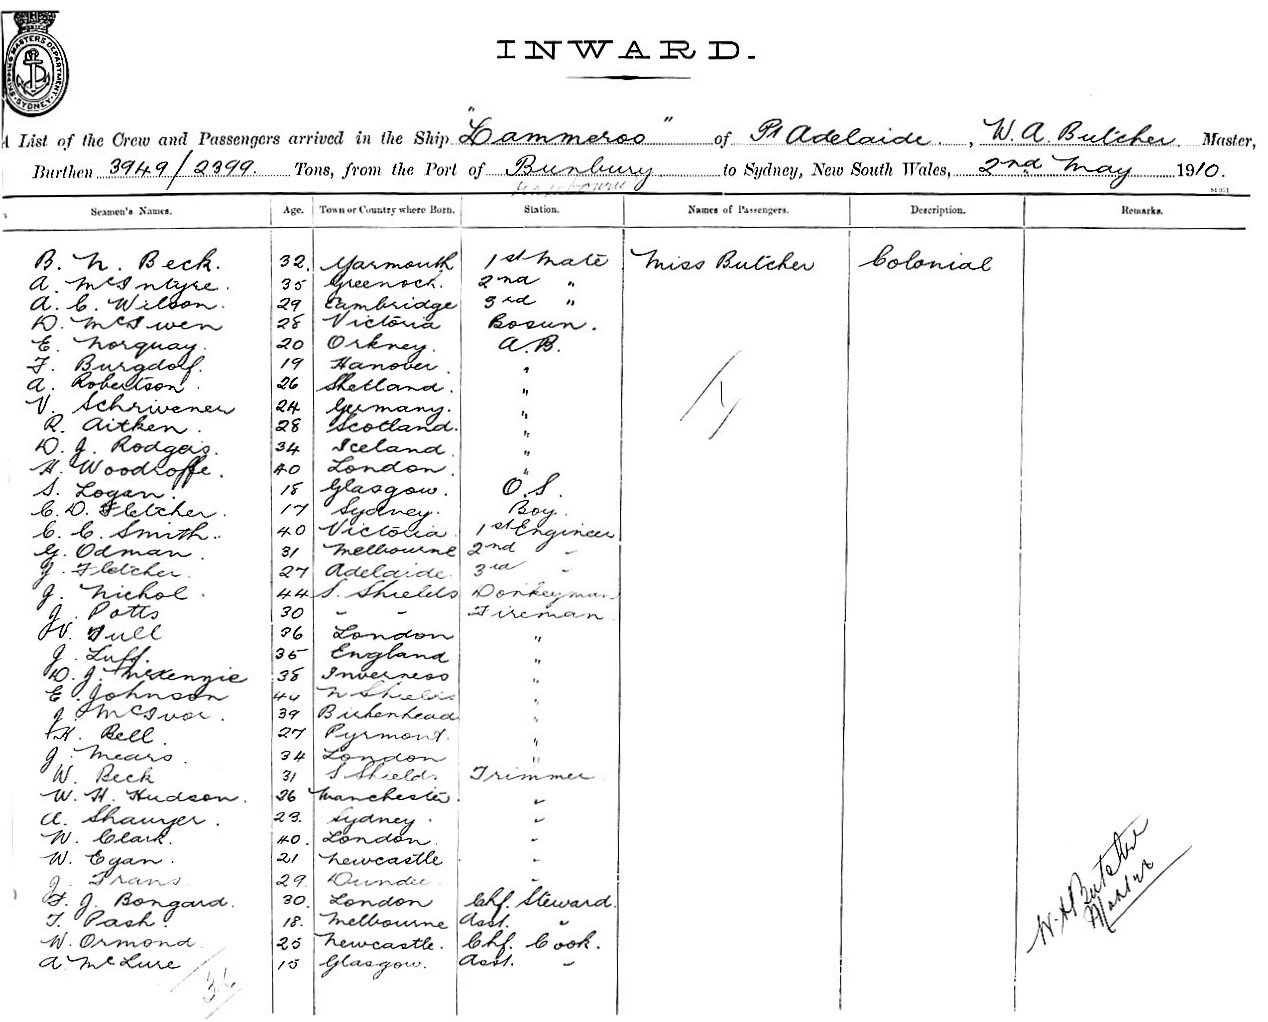 SHIPPING MASTERS DEPARTMENT SYDNEY
INWARD.
A List of the Crew and Passengers arrived in the Ship "Lammeroo" of Pt Adelaide, W. A. Butcher Master,
Burthen 3949/2399. Tons, from the Port of Bunbury to Sydney, New South Wales, 2nd May 1910.
Seamen's Names. Age. Town or Country where Born. Station. Names of Passengers. Description. Remarks.
B. N. Beck. 32. Yarmouth 1st Mate Miss Butcher Colonial
A. McIntyre. 35 Greenock. 2nd "
A. C. Wilson. 29 Cambridge 3rd "
D. McEwen 28 Victoria Bosun.
E. Norquay. 20 Orkney. A.B.
F. Burgdorf. 19 Hanover. "
A. Robertson. 26 Shetland. "
V. Schrivener 24 Germany. "
R. Aitken. 28 Scotland. "
D. J. Rodgers. 34 Iceland. "
H. Woodroffe. 40 London. "
S. Logan. 18 Glasgow. O.S.
C. D. Fletcher. 17 Sydney. Boy.
C. C. Smith. 40 Victoria 1st Engineer
G. Odman. 31 Melbourne 2nd "
J. Fletcher. 27 Adelaide 3rd "
J. Nichol. 44 S. Shields Donkeyman
J. Potts 30 " " Fireman
W. Tull 36 London "
J. Luff. 35 England "
D. J. McKenzie 38 Inverness "
E. Johnson 44 N Shields "
J. McIvor. 39 Birkenhead "
H. Bell. 27 Pyrmont. "
J. Mears. 34 London "
W. Beck 31 S Shields. Trimmer
W. H. Hudson. 26 Manchester. "
A. 23. Sydney. "
W. Clark. 40. London. "
W. Egan. 21 Newcastle "
J. Frans 29. Dundee. "
F. J. Bongard. 30. London Chf. Steward.
T. Pash. 18. Melbourne Asst. "
W. Ormond. 25 Newcastle. Chf. Cook.
A. McLure 15 Glasgow. Asst. "
36
W. A Butcher
Master